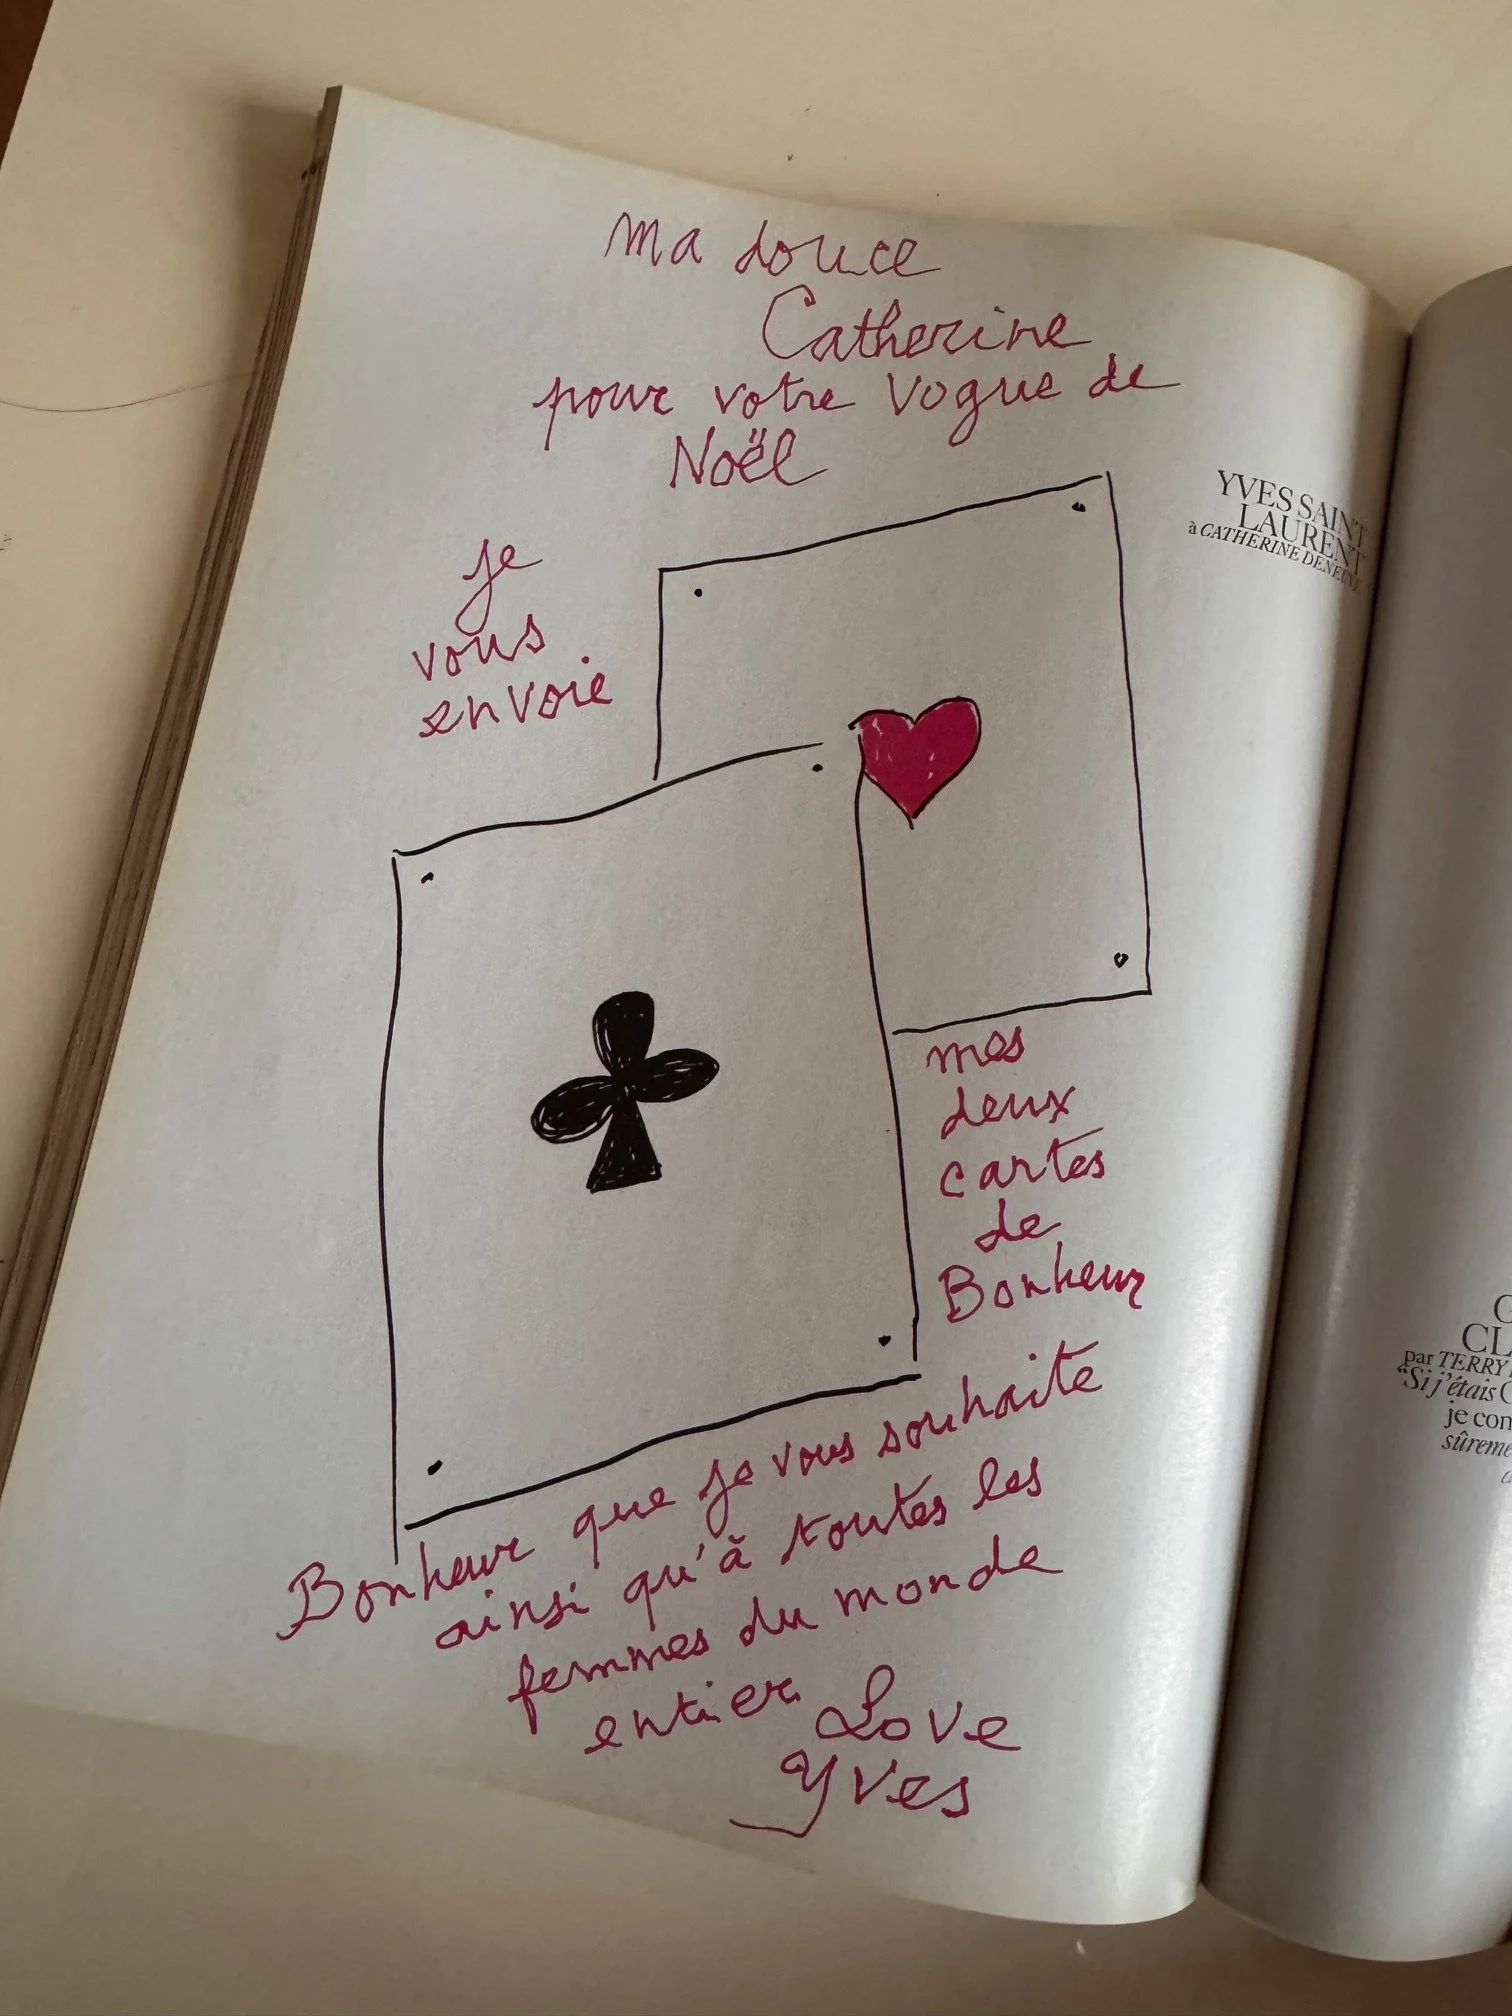 ma douce
Catherine
pour votre Vogue de
Noël
je
vous
envoie
YVES SAINT
LAURENT
à CATHERINE DENEUVE
mes
deux
cartes
de
Bonheur
Bonheur que je vous souhaite
ainsi qu'à toutes les
femmes du monde
entier
Love
Yves
par TERRY
"Si j'étais
je